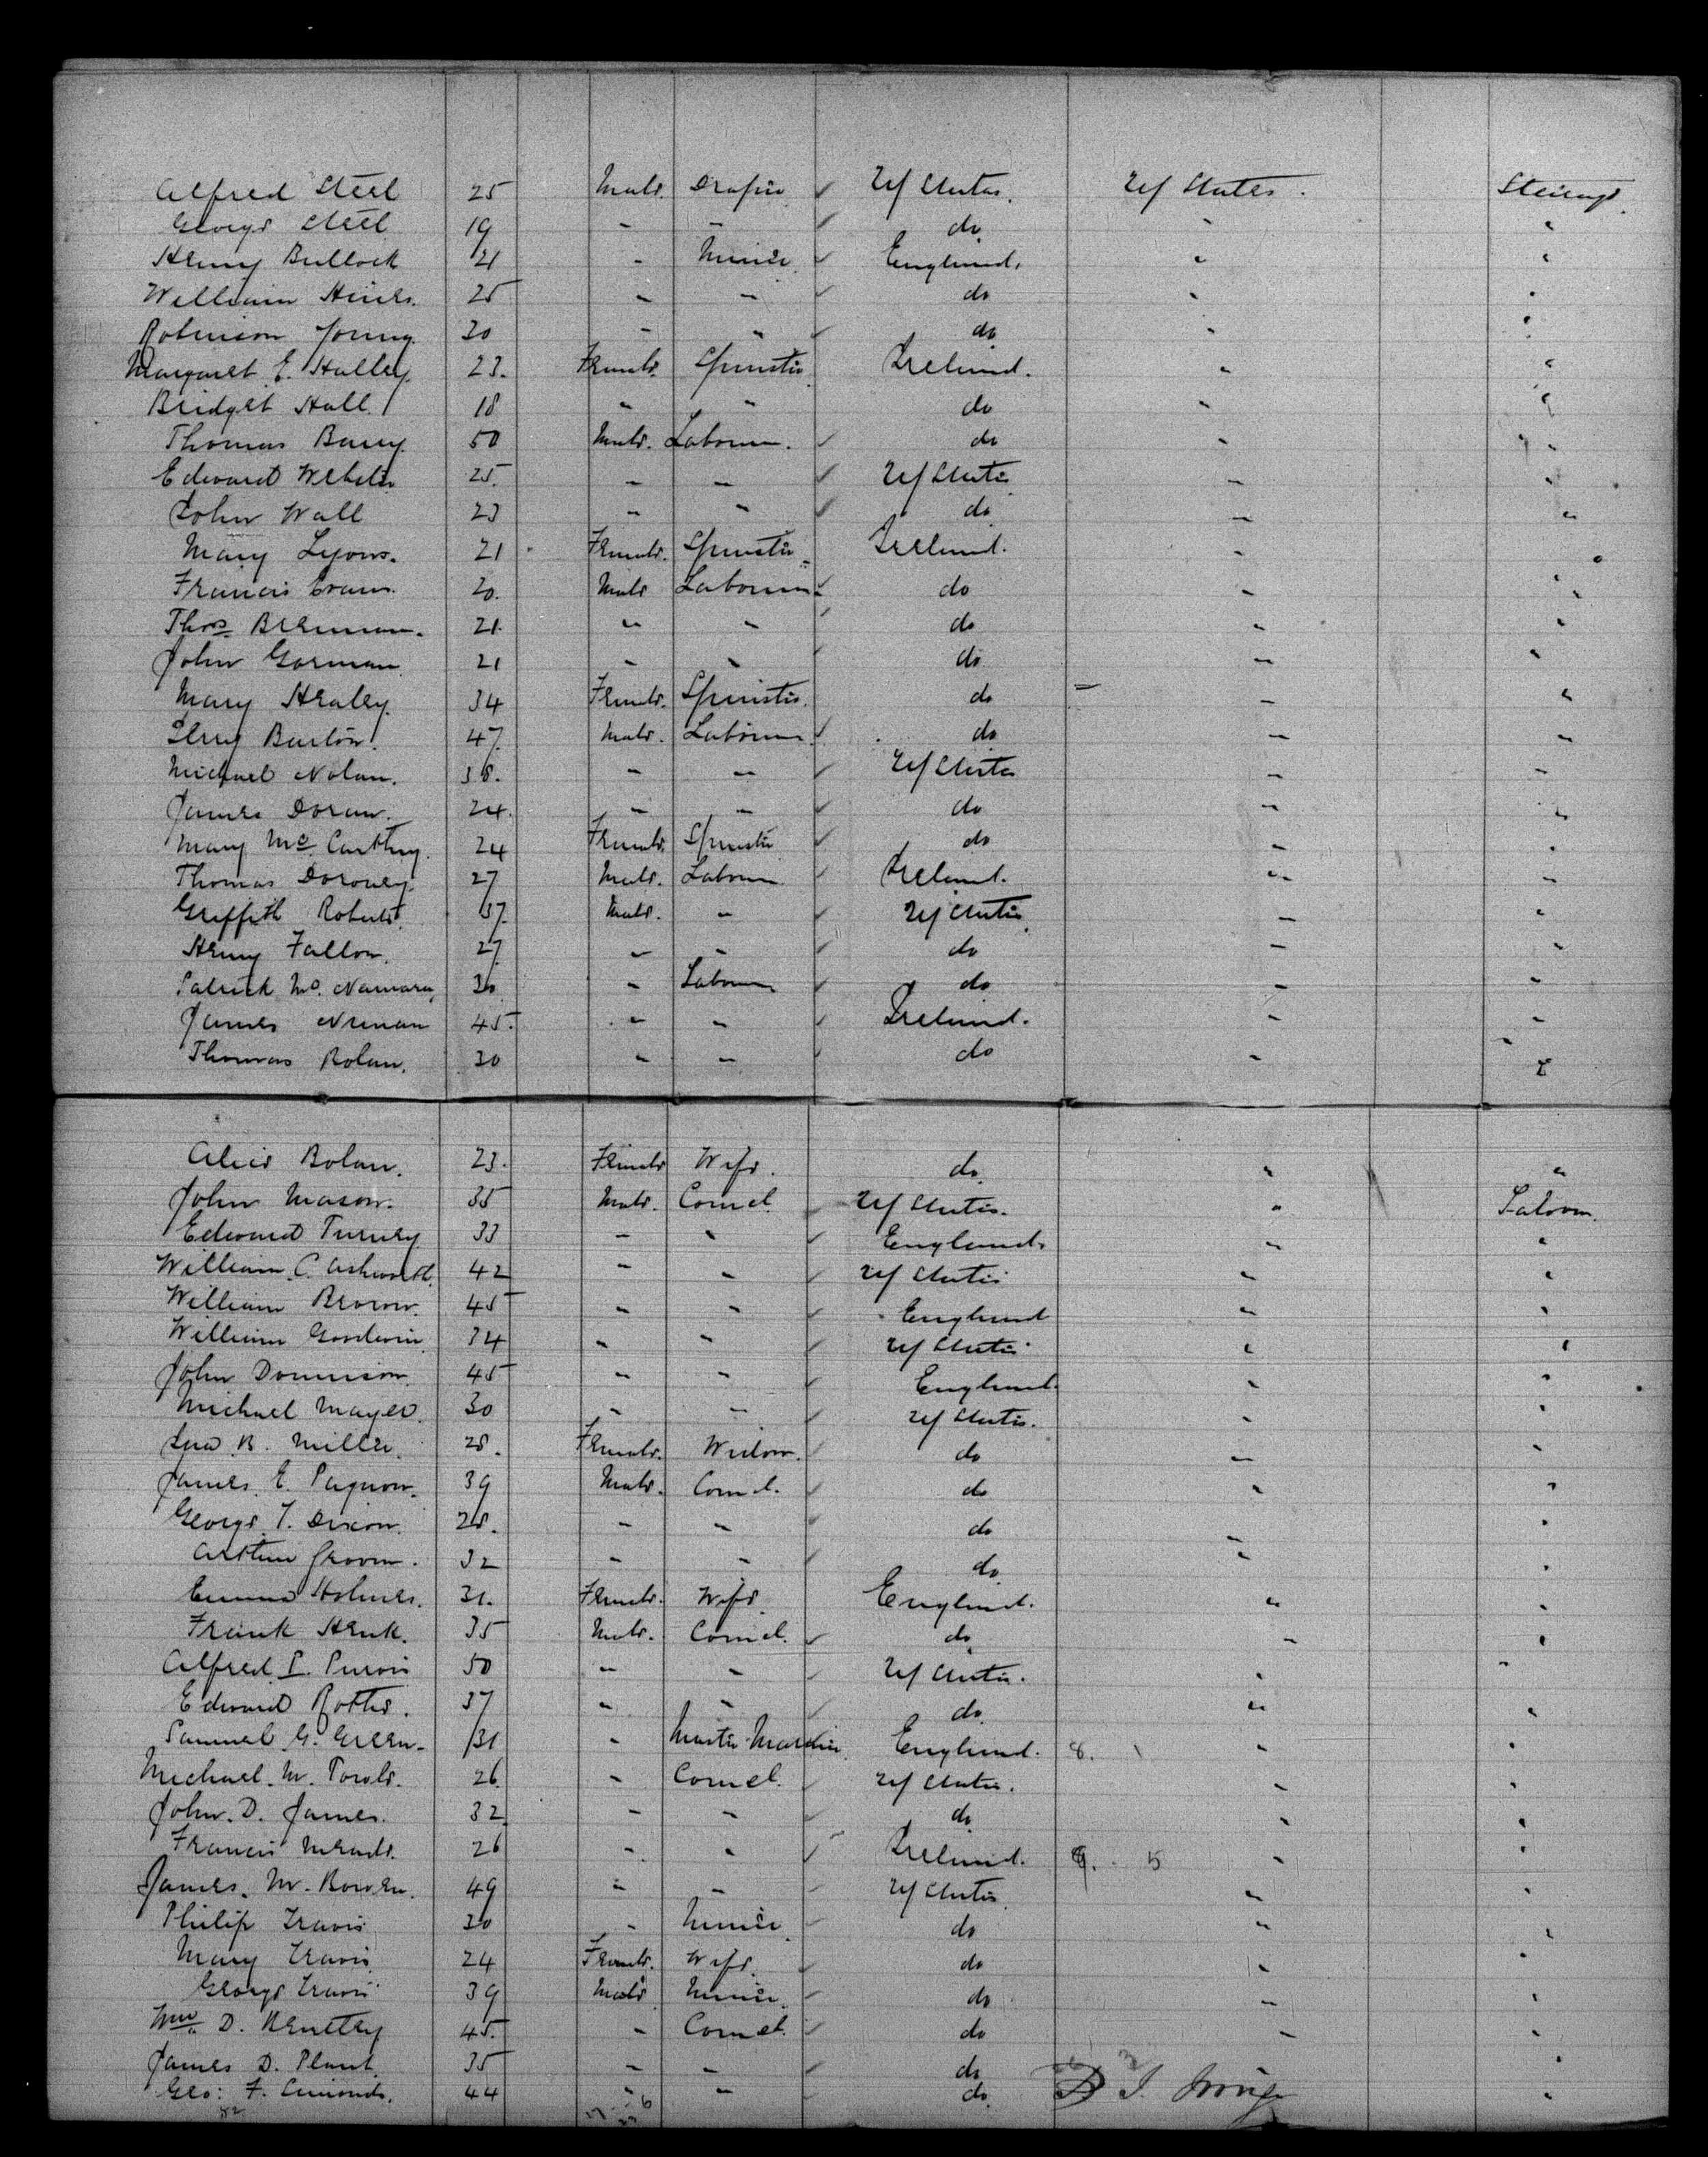 Alfred Steel 25 Male. Draper ✓ U/States. U/States. Steerage.
George Steel 19 " " ✓ do "  "
Henry Bullock 21 " Miner ✓ England. " "
William Hines. 25 " " ✓ do " "
Robinson Young 30 " " ✓ do " "
Margaret E. Halley. 23. Female. Spinster Ireland. " "
Bridget Hall 18 " " do " "
Thomas Barry. 50 Male. Labourer. ✓ do " "
Edward Webster 25. " " ✓ U/States " "
John Wall 23 " " ✓ do " "
Mary Lyons. 21 Female. Spinster Ireland. " "
Francis Evans. 20. Male Labourer ✓ do " "
Thos Brennan. 21. " " ✓ do " "
John Gorman 21 " " do " "
Mary Healey. 34 Female. Spinster. do " "
Burton. 47. Male. Labourer ✓ do " "
Michael Nolan. 38. " " ✓ U/States " "
James Doran. 24. " " ✓ do " "
Mary Mc Carthy. 24 Female. Spinster ✓ do " "
Thomas Doroney. 27 Male. Labourer ✓ Ireland. " "
Griffith Roberts. 37. Male. " ✓ U/States " "
Henry Fallon. 27. " " ✓ do " "
Patrick Mc. Namara, 30 " Labourer ✓ do " "
James 45. " " ✓ Ireland. " "
Thomas Bolan. 30 " " do " "
Alice Bolan. 23. Female Wife. do " "
John Mason. 35 Male. Comcl. ✓ U/States. " Saloon.
Edward Turney 33 " " ✓ England. " "
William C. Ashworth. 42 " " ✓ U/States " "
William Brown. 45 " " ✓ England " "
William Goodwin 34 " " ✓ U/States " "
John Dennison 45 " " ✓ England. " "
Michael Mayer. 30 " " ✓ U/States. " "
B. Miller. 28. Female. Widow. ✓ do " "
James. E. Pagnon. 39 Male. Comcl. ✓ do " "
George. T. Dixon. 28. " " ✓ do " "
Arthur Groom. 32 " " ✓ do " "
Emma Holmes. 31. Female. Wife. England. " "
Frank Henk. 35 Male. Comcl. ✓ do " "
Alfred I. Purvis 50 " " ✓ U/States. " "
Edward Potter. 37 " " ✓ do " "
Samuel G. Green. 31 " Master Mariner England. 8. " "
Michael. M. Towle. 26. " Comcl. ✓ U/States. " "
John. D. James. 32 " " ✓ do " "
Francis Meade. 26 " " ✓ Ireland. 9. 5 " "
James. M. Bowen. 49 " " ✓ U/States " "
Philip Travis 30 " Miner ✓ do " "
Mary Travis 24 Female. Wife. do " "
George Travis 39 Male Miner. ✓ do " "
Wm. D. Kenetty 45. " Comcl. ✓ do " "
James D. Plant. 35 " " ✓ do "
Geo: F. Edmonds. 44 " " do "